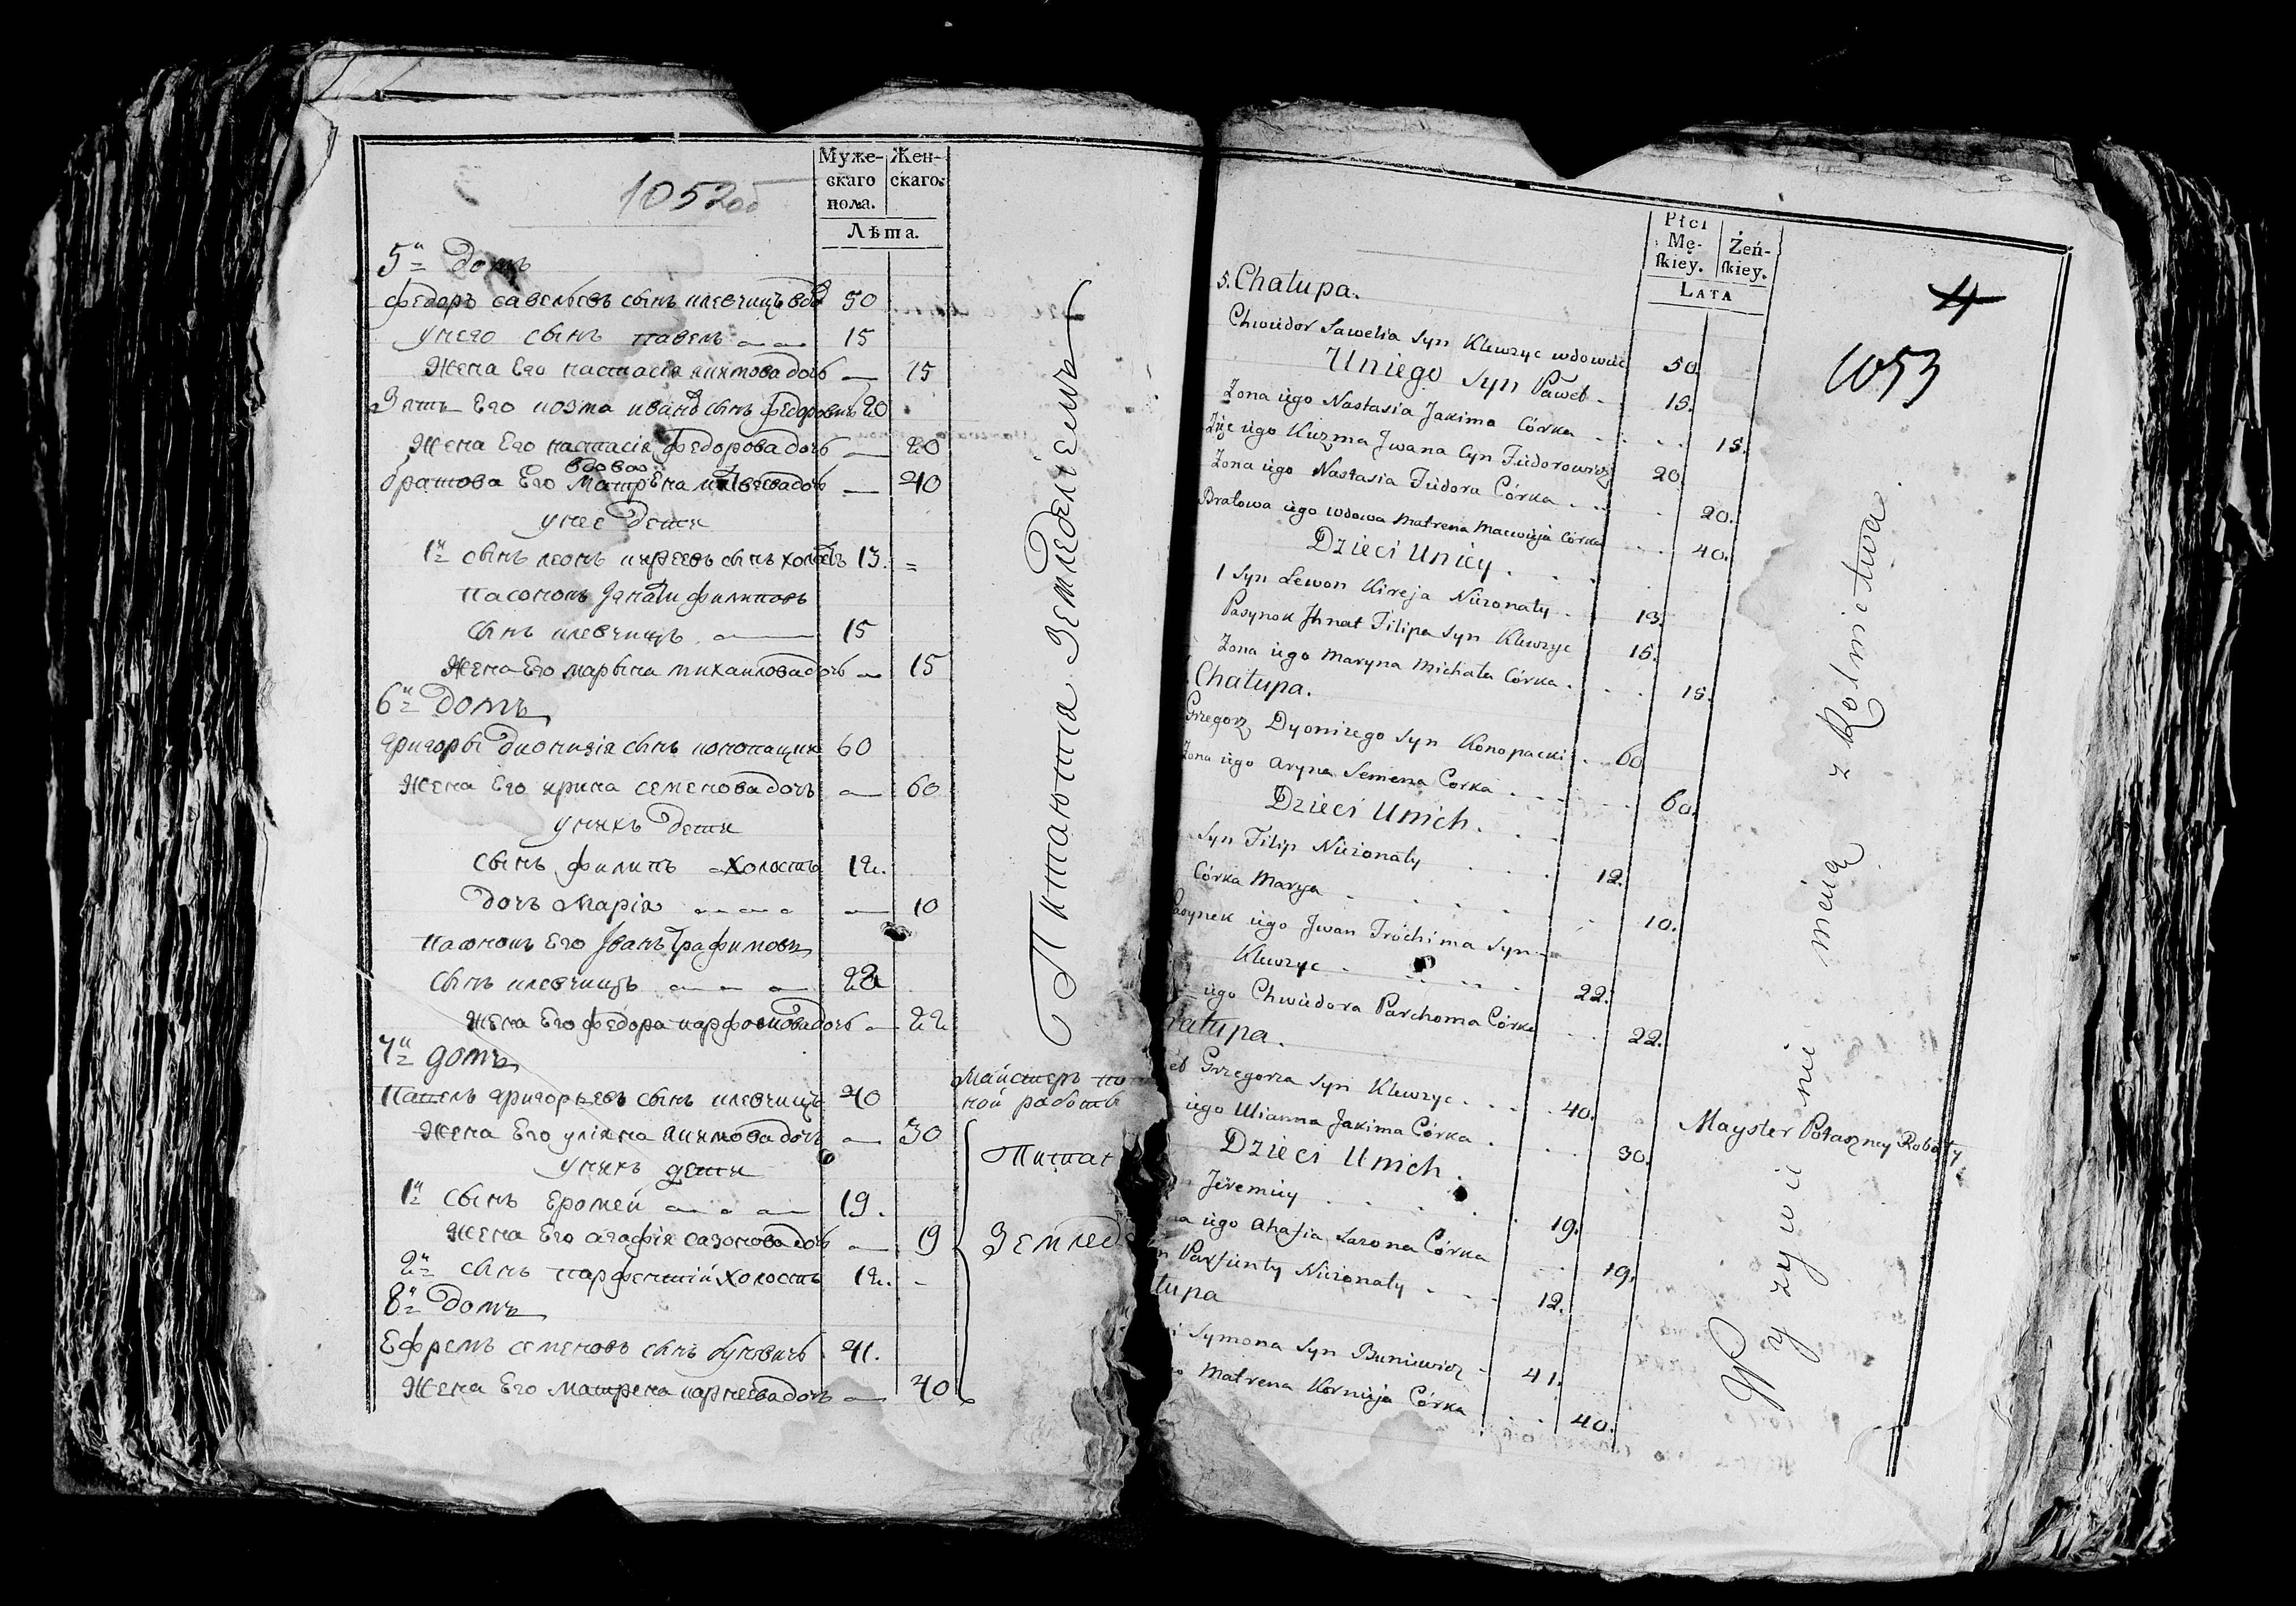 1052об
Муже-
скаго
пола.
Жен-
скаго.
Лѣта.
5й домъ
Федоръ савельевъ сынъ клевчицъ вдо 50
унего сынъ павелъ 15
Жена Его настасія якимова дочь 15
Зять Его козма иванъ сынъ федоровичь 20
Жена Его настасія федорова дочь 20
вдова
братова Его матрена матвеева дочь 40
унее дети
1й сынъ леонъ киреевъ сынъ холостъ 13.
пасонокъ Игнатъ филиповъ
сынъ клевчицъ 15
Жена Его марына михаилова дочь 15
6й домъ
григоры дионизія сынъ конопацки 60
Жена Его ирина семенова дочь 60
унихъ дети
сынъ филипъ холостъ 12.
дочь марія 10
пасонокъ Его Иванъ Трафимовъ
сынъ клевчицъ 22
жена Его федора парфомова дочь 22
7й домъ
Павелъ григорьевъ сынъ клевчицъ 40
Жена Его уліяна якимова дочь 30
унихъ дети
1й сынъ Еромей 19.
жена Его агафія сазонова дочь 19
2й сынъ парфентій холостъ 12.
8й домъ
Ефремъ семеновъ сынъ буневичь 41.
Жена Его матрена карнеева дочь 40
Питаютца Земледелиемъ
Майстеръ по
ной работы
Питаю
Землед
Płci
Mę-
skiey.
Żeń-
skiey.
LATA
4
1053
5. Chałupa.
Chwiedor Sawelia Syn Klewzyc wdowiec 50.
Uniego Syn Paweł 15.
Zona iego Nastasia Jakima Córka 15.
Zięc iego Kuzma Jwana Cyn Fiedorowicz 20.
Zona iego Nastasia Fiedora Córka 20.
Bratowa iego wdowa Matrena Macwieja Córka 40.
Dzieci Uniey
1 Syn Lewon Kireja Nieżonaty 13.
Pasynok Jhnat Filipa Syn Klewzyc 15.
Zona iego Maryna Michała Córka 15.
Chałupa.
Grzegorz Dyonizego Syn Konopacki 60
Zona iego Aryna Semena Corka 60.
Dzieci Unich.
Syn Filip Nieżonaty 12.
Córka Marya 10.
Pasynek iego Jwan Trochima Syn
Klewzyc 22.
iego Chwiedora Parchoma Córka 22.
hałupa.
eł Grzegorza Syn Klewzyc 40.
iego Ulianna Jakima Córka 30.
Dzieci Unich.
Jeremiey 19.
na iego Ahafia Sazona Córka 19.
n Parfienty Nieżonaty 12.
łupa
i Symona Syn Buniewicz 41.
o Matrena Kornieja Córka 40.
Wyzywienie mieią z Rolnictwa.
Mayster Potaszney Roboty